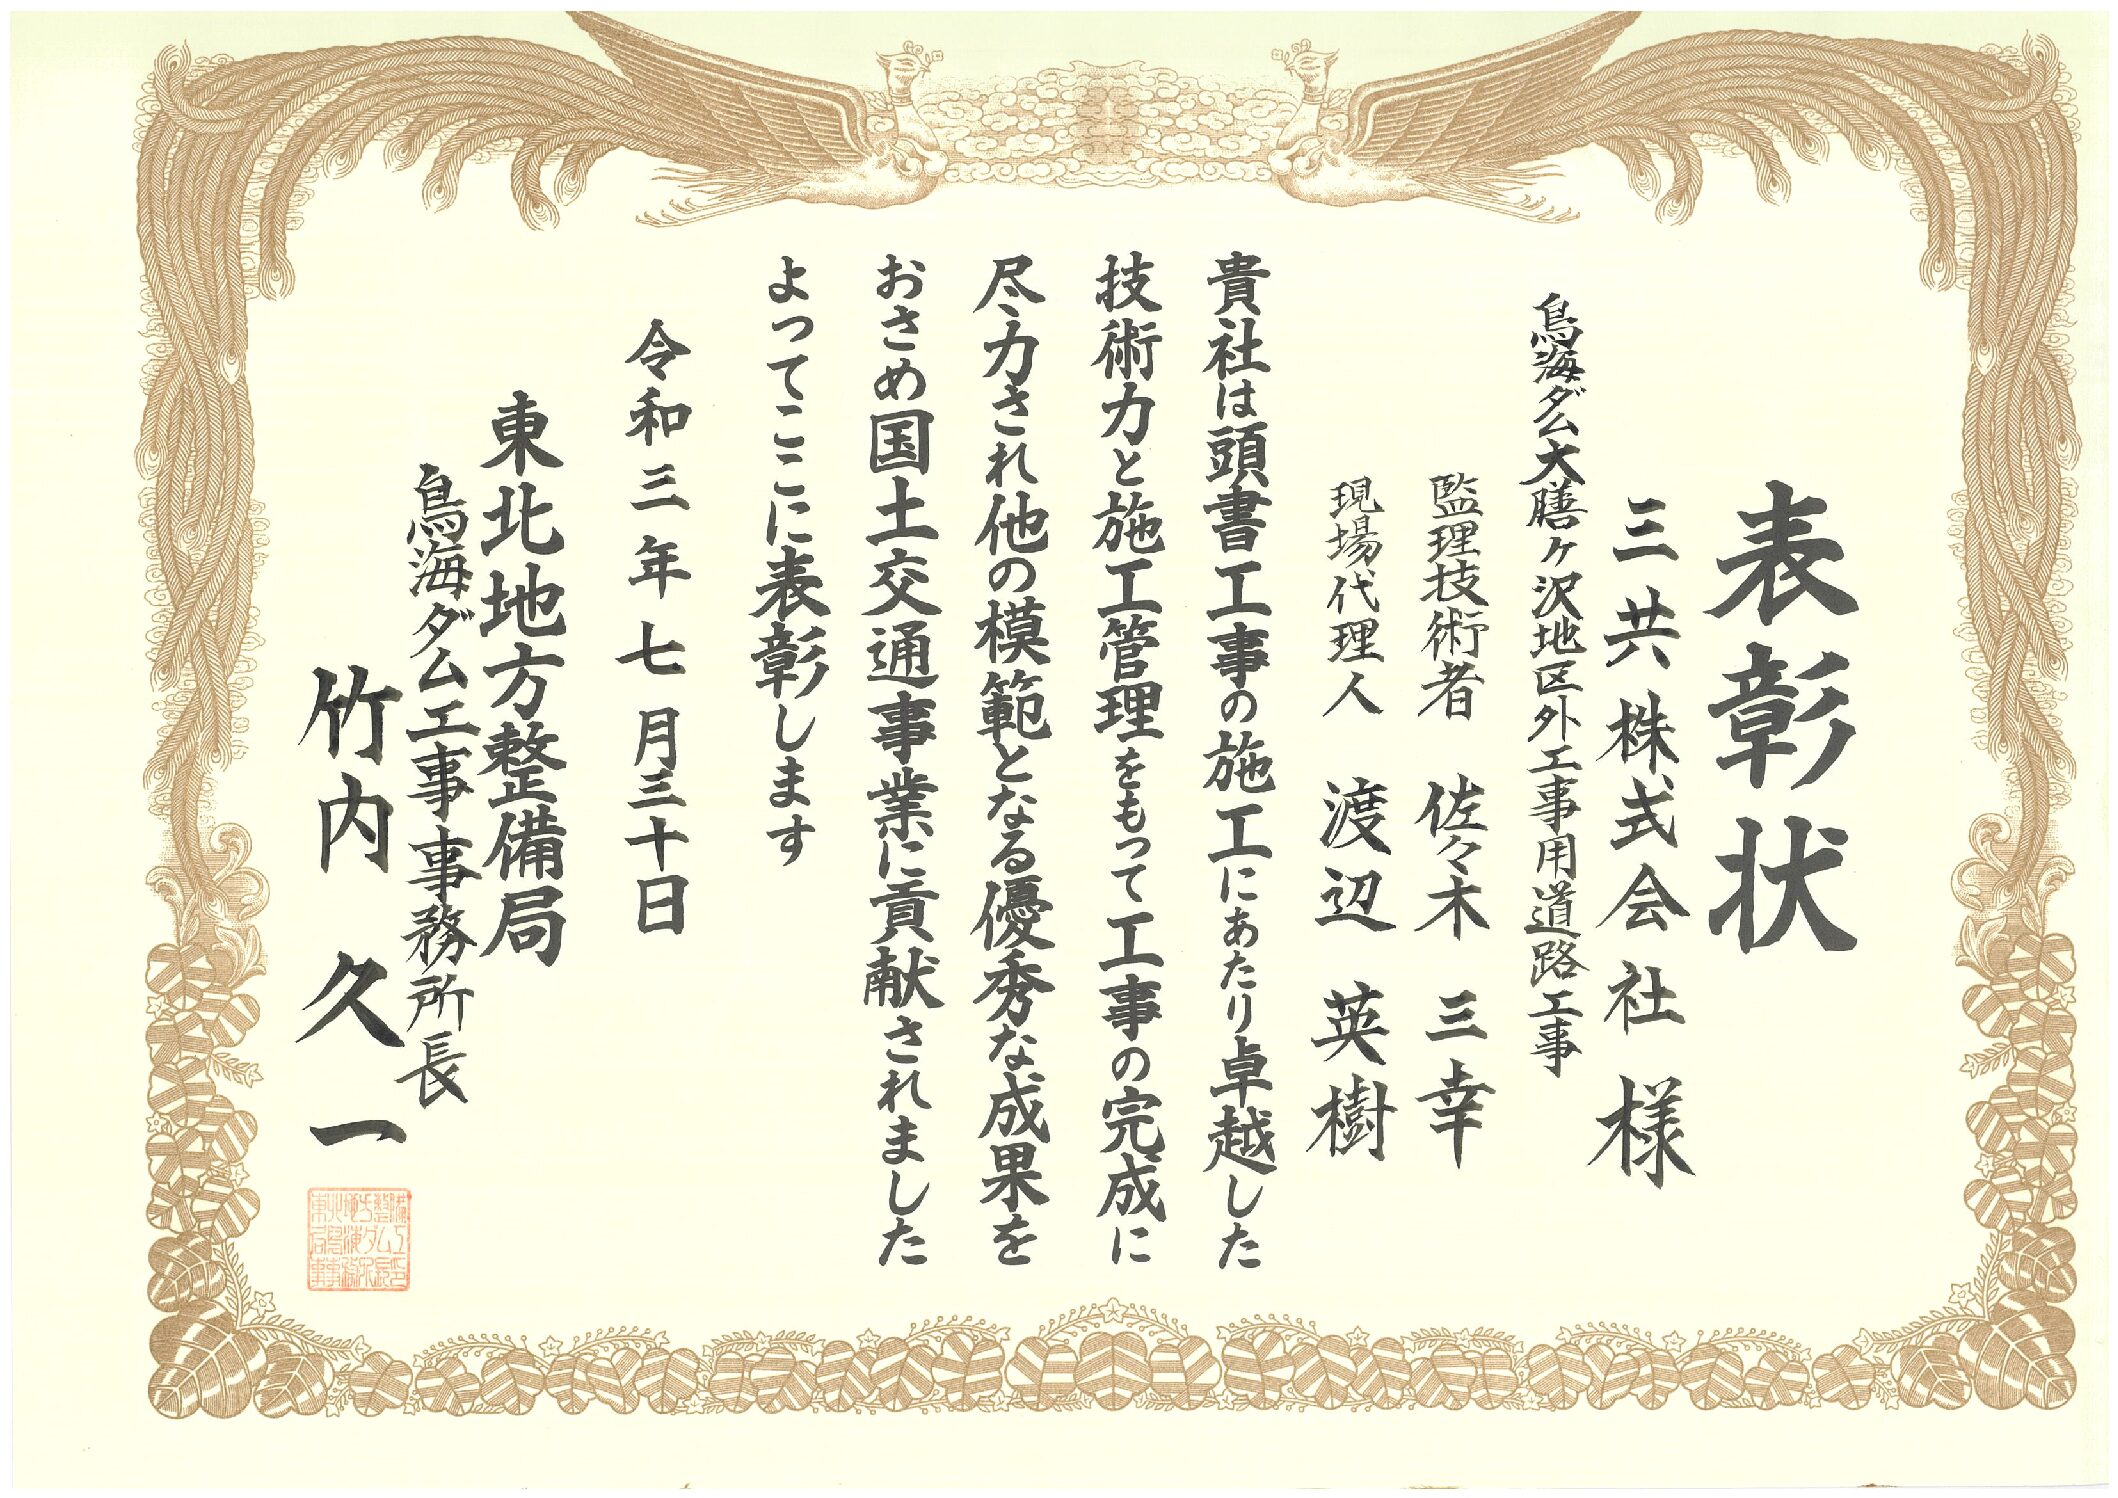 表彰状
三共株式会社様
鳥海ダム大膳ヶ沢地区外工事用道路工事
監理技術者 佐々木 三幸
現場代理人 渡辺 英樹
貴社は頭書工事の施工にあたり卓越した
技術力と施工管理をもって工事の完成に
尽力され他の模範となる優秀な成果を
おさめ国土交通事業に貢献されました
よってここに表彰します
令和三年七月三十日
東北地方整備局
鳥海ダム工事事務所長
竹内 久一